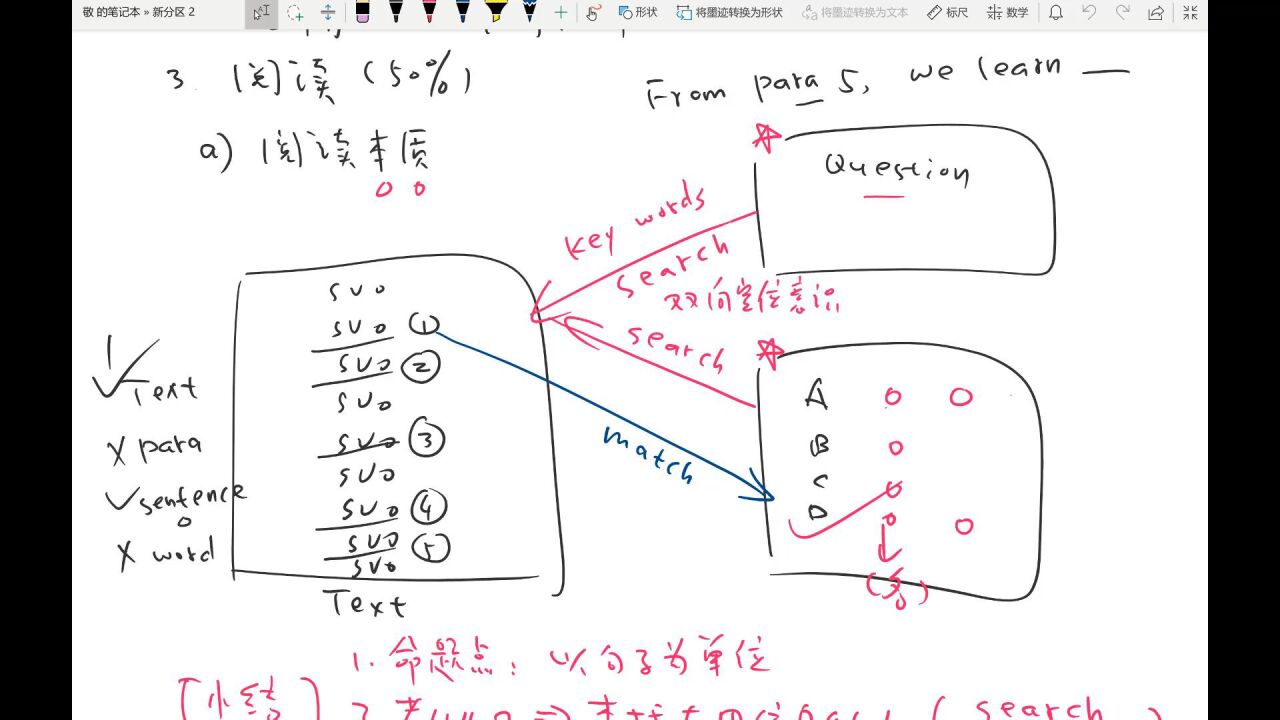 敬 的笔记本 » 新分区 2
形状
将墨迹转换为形状
将墨迹转换为文本
标尺
数学
3. 阅读 (50%)
From para 5, we learn
a) 阅读本质
Question
key words
search
双向定位意识
search
match
SVO
SVO ①
SVO ②
SVO
SVO ③
SVO
SVO ④
SVO ⑤
SVO
Text
Text
para
sentence
word
A
B
C
D
1. 命题点: 以句子为单位
[小结]
2.
(search